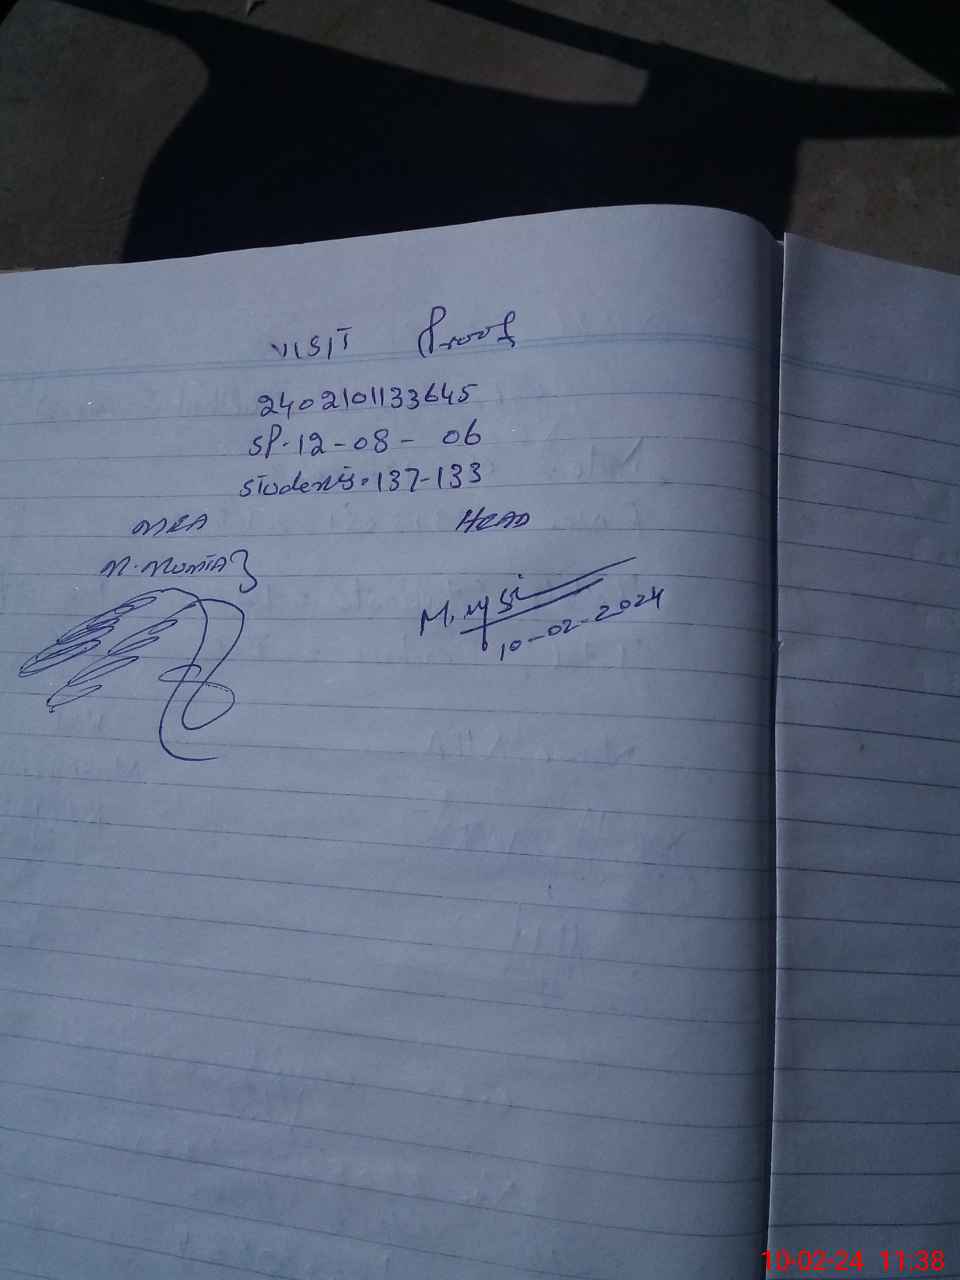 VISIT Proof
2402101133645
SP-12-08-06
Students. 137-133
MEA HEAD
M. Mumtaz
10-02-2024
10-02-24 11:38